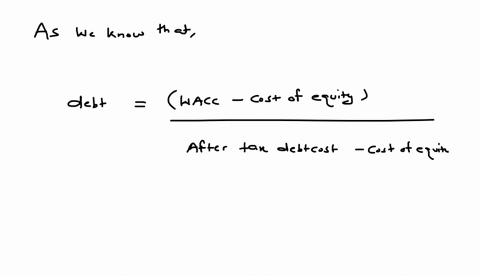 As we know that,
debt = (WACC - Cost of equity)
After tax debt cost - Cost of equit